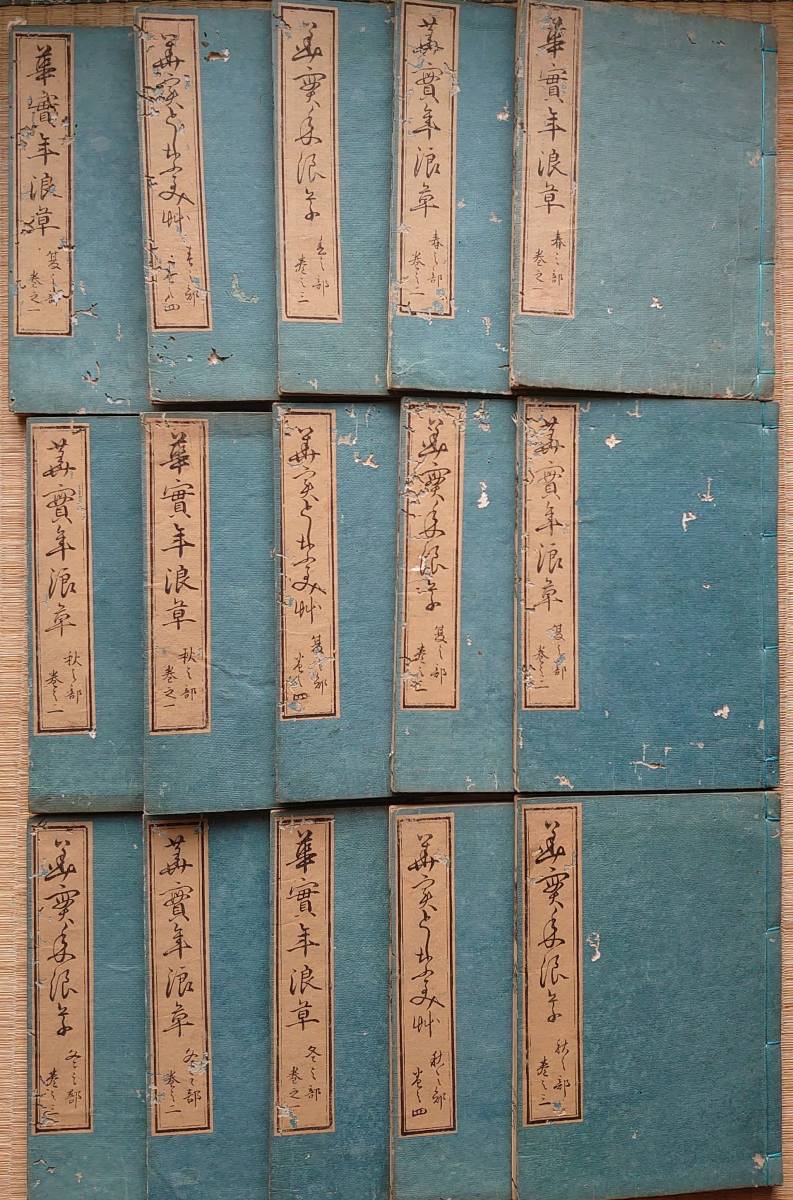 華實年浪草
春之部
巻之一
華實年浪草
春之部
巻之二
華實年浪草
春之部
巻之三
華実とし奈美艸
春之部
巻之四
華實年浪草
夏之部
巻之一
華實年浪草
夏之部
巻之二
華實年浪草
夏之部
巻之三
華実とし奈美艸
夏之部
巻之四
華實年浪草
秋之部
巻之一
華實年浪草
秋之部
巻之二
華實年浪草
秋之部
巻之三
華実とし奈美艸
秋之部
巻之四
華實年浪草
冬之部
巻之一
華實年浪草
冬之部
巻之二
華實年浪草
冬之部
巻之三